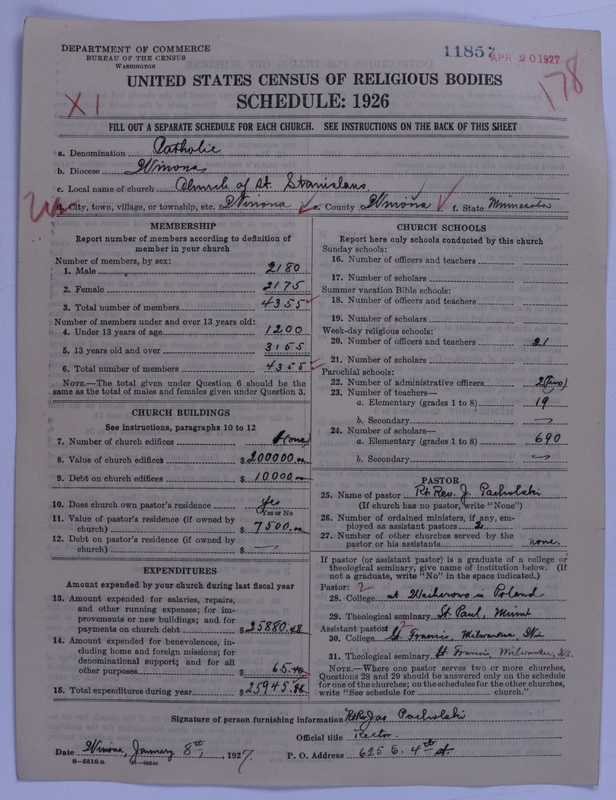 DEPARTMENT OF COMMERCE
BUREAU OF THE CENSUS
WASHINGTON
11857
APR 20 1927
178
UNITED STATES CENSUS OF RELIGIOUS BODIES
SCHEDULE: 1926
X 1
FILL OUT A SEPARATE SCHEDULE FOR EACH CHURCH. SEE INSTRUCTIONS ON THE BACK OF THIS SHEET
a. Denomination Catholic
b. Diocese Winona
c. Local name of church Church of St. Stanislaus
d. City, town, village, or township, etc. Winona e. County Winona f. State Minnesota
MEMBERSHIP
Report number of members according to definition of
member in your church
Number of members, by sex:
1. Male 2180
2. Female 2175
3. Total number of members 4355
Number of members under and over 13 years old:
4. Under 13 years of age 1200
5. 13 years old and over 3155
6. Total number of members 4355
NOTE.—The total given under Question 6 should be the
same as the total of males and females given under Question 3.
CHURCH BUILDINGS
See instructions, paragraphs 10 to 12
7. Number of church edifices 1 (one)
8. Value of church edifices $200000.00
9. Debt on church edifices $10000.00
10. Does church own pastor's residence yes
Yes or No
11. Value of pastor's residence (if owned by
church) $7500.00
12. Debt on pastor's residence (if owned by
church) $ —
EXPENDITURES
Amount expended by your church during last fiscal year
13. Amount expended for salaries, repairs,
and other running expenses; for im-
provements or new buildings; and for
payments on church debt $25880.48
14. Amount expended for benevolences, in-
cluding home and foreign missions; for
denominational support; and for all
other purposes $65.40
15. Total expenditures during year $25945.88
CHURCH SCHOOLS
Report here only schools conducted by this church
Sunday schools:
16. Number of officers and teachers
17. Number of scholars
Summer vacation Bible schools:
18. Number of officers and teachers
19. Number of scholars
Week-day religious schools:
20. Number of officers and teachers 21
21. Number of scholars
Parochial schools:
22. Number of administrative officers 2 (two)
23. Number of teachers—
a. Elementary (grades 1 to 8) 19
b. Secondary —
24. Number of scholars—
a. Elementary (grades 1 to 8) 690
b. Secondary —
PASTOR
25. Name of pastor Rt Rev. J. Pacholski
(If church has no pastor, write "None")
26. Number of ordained ministers, if any, em-
ployed as assistant pastors 2
27. Number of other churches served by the
pastor or his assistants none
If pastor (or assistant pastor) is a graduate of a college or
theological seminary, give name of institution below. (If
not a graduate, write "No" in the space indicated.)
Pastor: 2
28. College at in Poland
29. Theological seminary St. Paul, Minn
Assistant pastor: 2
30. College St Francis, Milwaukee, Wis
31. Theological seminary St Francis, Milwaukee, Wis.
NOTE.—Where one pastor serves two or more churches,
Questions 28 and 29 should be answered only on the schedule
for one of the churches; on the schedules for the other churches,
write "See schedule for church."
Signature of person furnishing information Rt Rev Jas Pacholski
Official title Rector
Date Winona, January 8th, 1927. P. O. Address 625 E. 4th St.
8—5519a